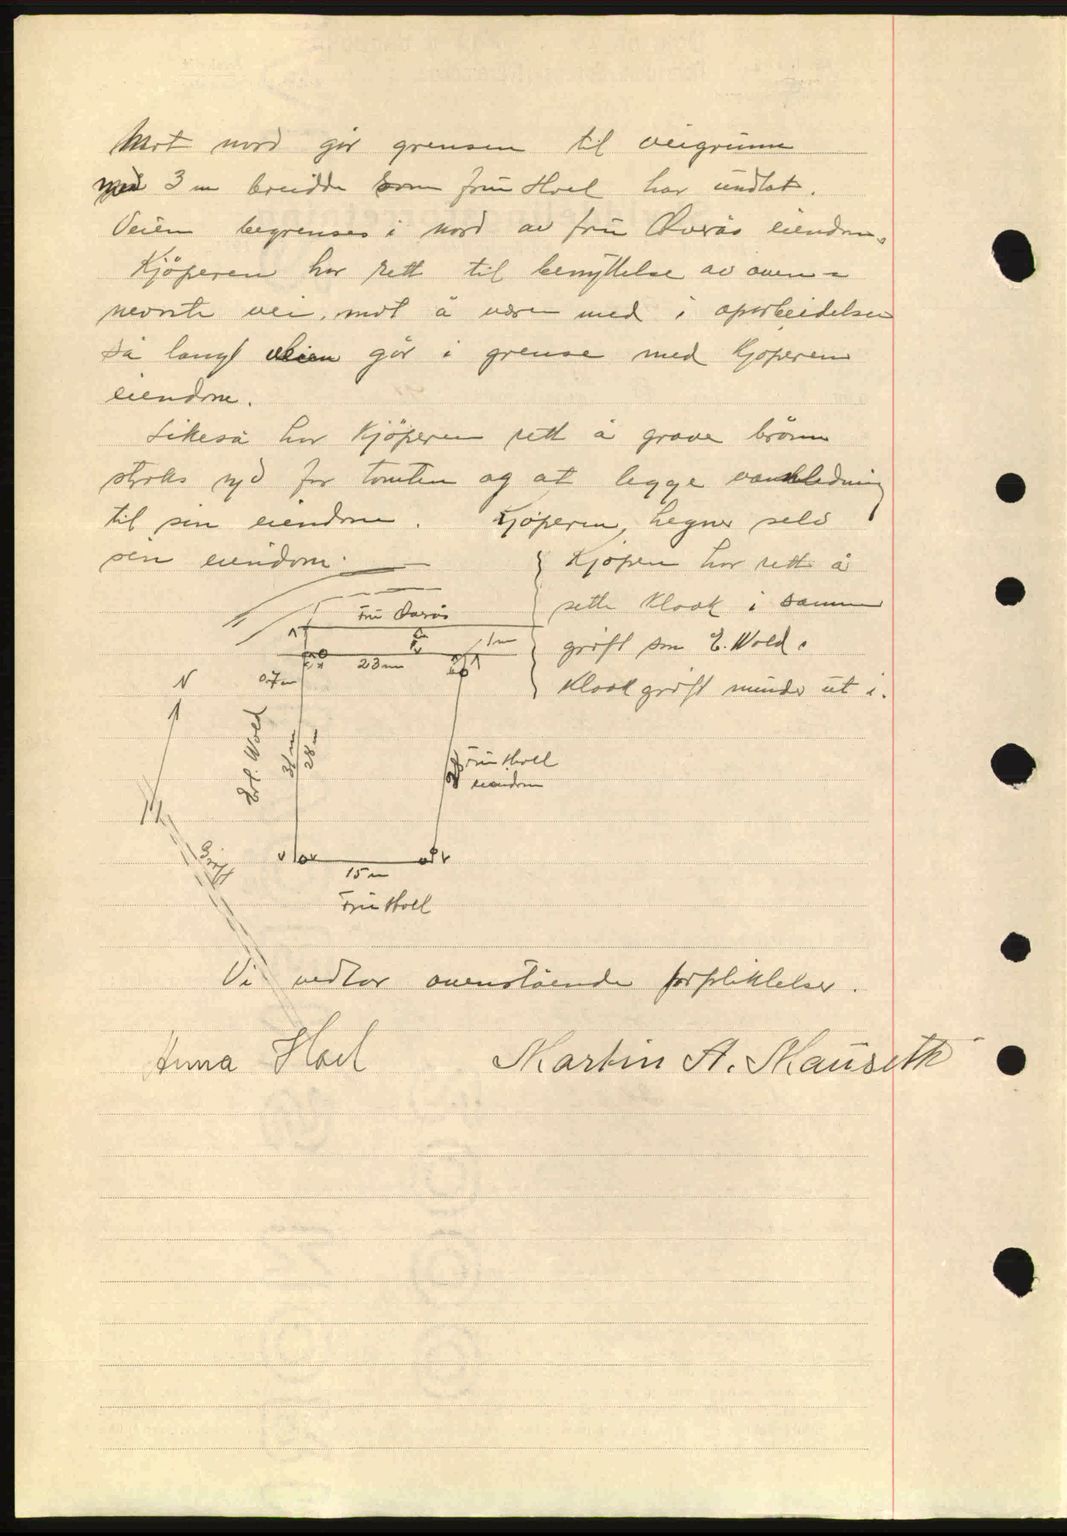 Mot nord går grensen til veigrunn
med 3 m bredde som fru Hoel har undlat.
Veien begrenses i nord av fru Øverås eiendom.
Kjöperen har rett til benyttelse av oven=
nevnte vei, mot å være med i oparbeidelsen
så langt veien går i grense med Kjöperens
eiendom.
Likeså har Kjöperen rett å grave brönn
straks syd for tomten og at legge vandledning
til sin eiendom. Kjöperen, hegner selv
sin eiendom.
Kjöpen har rett å
sette Kloak i samme
gröft som E. Wold.
Kloak gröft munder ut i.
Fru Øverås
1 m
23 m
0.7 m
N
Erl. Wold
31 m
28 m
28
Fru Hoel
eiendom
Gröft
15 m
Fru Hoel
Vi vedtar ovenstående forpliktelser.
Anna Hoel Martin A. Mauseth